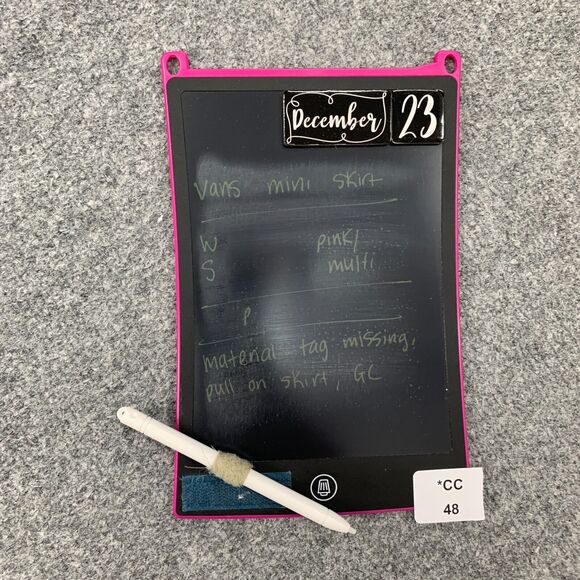 December 23
Vans mini skirt
W pink/
S multi
P
material tag missing,
pull on skirt, GC
*CC
48